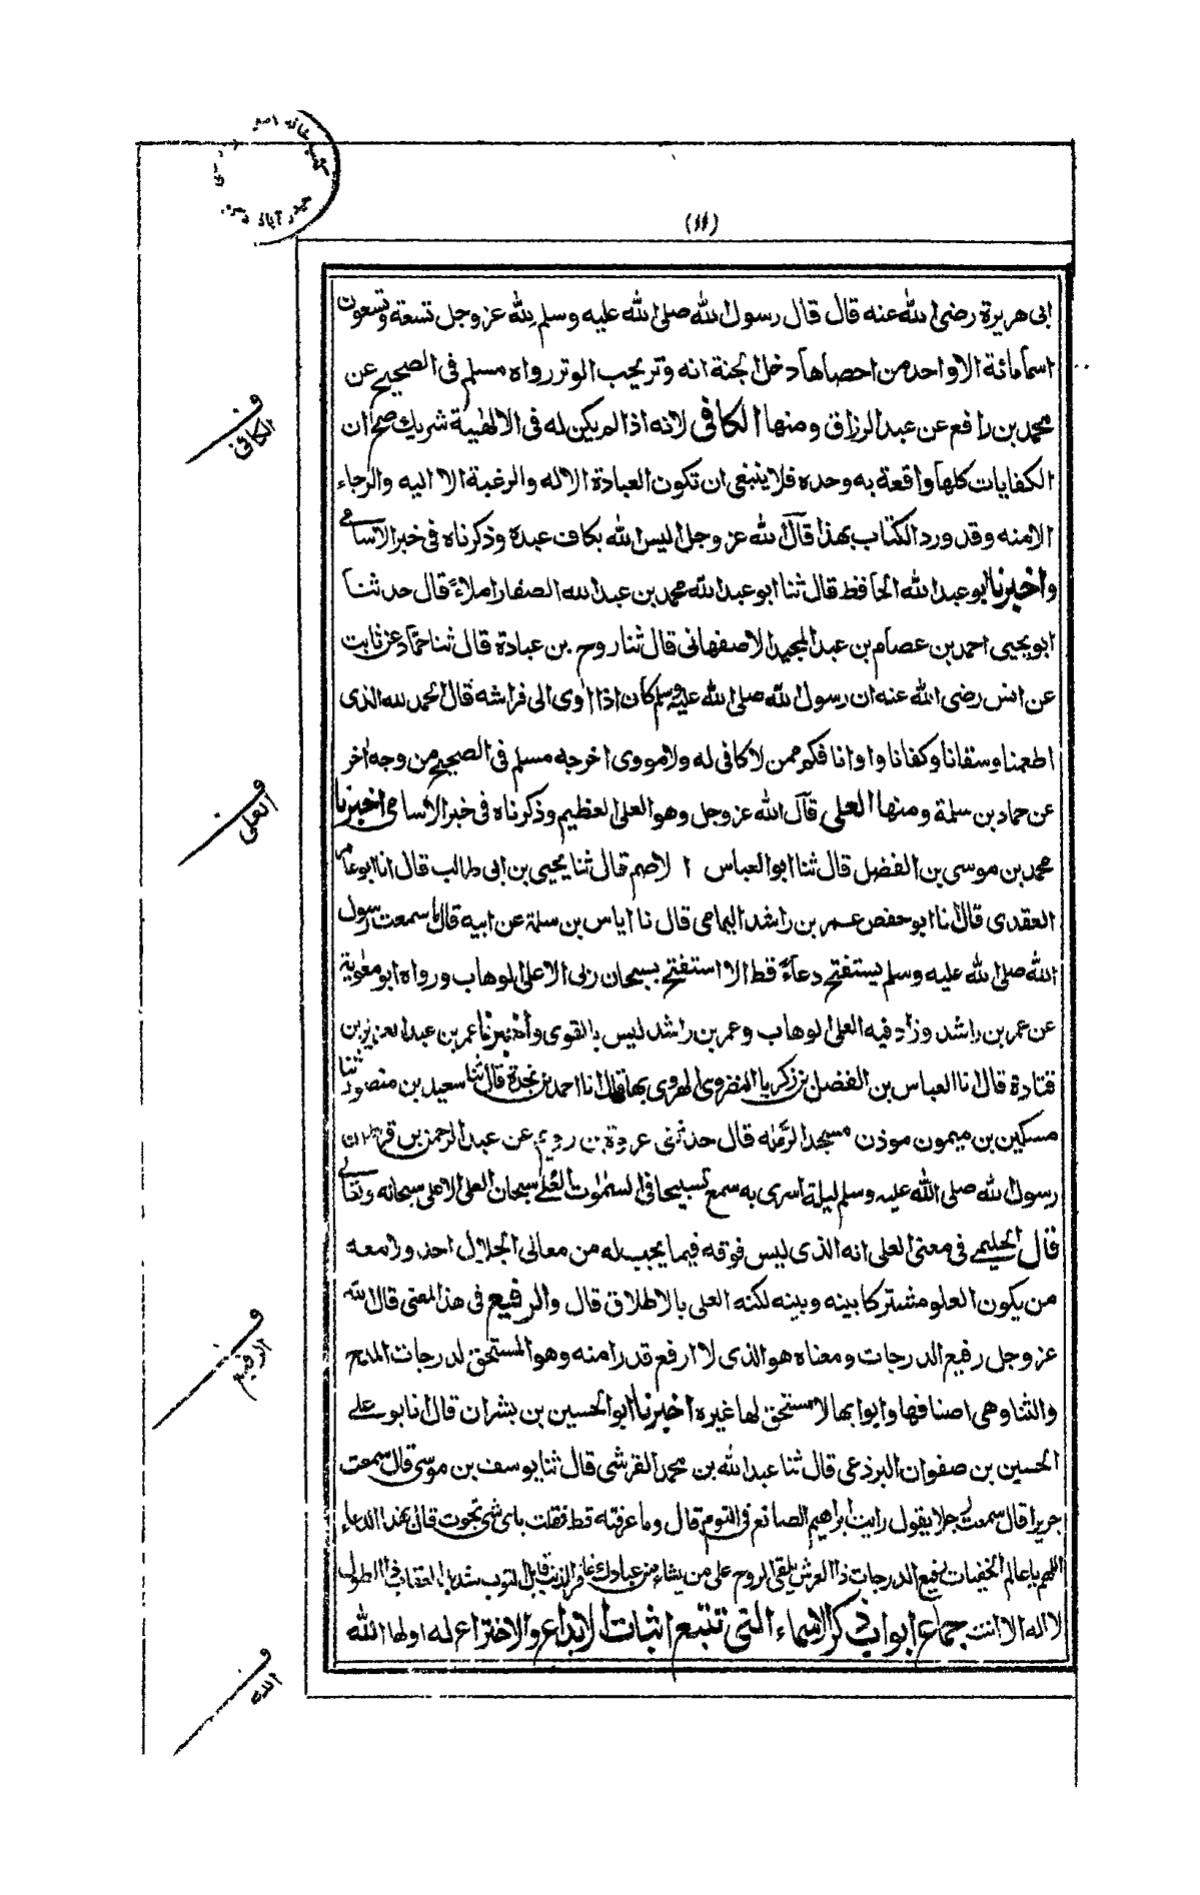 (١١)
ابى هريرة رضى الله عنه قال قال رسول الله صلى الله عليه وسلم لله عز وجل تسعة وتسعون
اسما مائة الا واحد من احصاها دخل الجنة انه وتر يحب الوتر رواه مسلم فى الصحيح عن
محمد بن رافع عن عبد الرزاق ومنها الكافى لانه اذا لم يكن له فى الالهية شريك صح ان
الكفايات كلها واقعة به وحده فلا ينبغى ان تكون العبادة الا له والرغبة الا اليه والرجاء
الا منه وقد ورد الكتاب بهذا قال الله عز وجل اليس الله بكاف عبده وذكرناه فى خبر الاسامى
واخبرنا ابو عبد الله الحافظ قال ثنا ابو عبد الله محمد بن عبد الله الصفار املاءً قال حدثنا
ابو يحيى احمد بن عصام بن عبد المجيد الاصفهانى قال ثنا روح بن عبادة قال ثنا حماد عن ثابت
عن انس رضى الله عنه ان رسول الله صلى الله عليه وسلم كان اذا اوى الى فراشه قال الحمد لله الذى
اطعمنا وسقانا وكفانا واوانا فكم ممن لا كافى له ولا مووى اخرجه مسلم فى الصحيح من وجه اخر
عن حماد بن سلمة ومنها العلى قال الله عز وجل وهو العلى العظيم وذكرناه فى خبر الاسامى اخبرنا
محمد بن موسى بن الفضل قال ثنا ابو العباس الاصم قال ثنا يحيى بن ابى طالب قال انا ابو عامر
العقدى قال نا ابو حفص عمر بن راشد اليمامى قال نا اياس بن سلمة عن ابيه قال ما سمعت رسول
الله صلى الله عليه وسلم يستفتح دعاءً قط الا استفتح بسبحان ربى الاعلى الوهاب ورواه ابو معوية
عن عمر بن راشد وزاد فيه العلى الوهاب وعمر بن راشد ليس بالقوى واخبرنا عمر بن عبد العزيز بن
قتادة قال انا العباس بن الفضل بن زكريا النضروى الهروى بها قال انا احمد بن نجدة قال ثنا سعيد بن منصور ثنا
مسكين بن ميمون موذن مسجد الرملة قال حدثنى عروة بن رويم عن عبد الرحمن بن قرط ان
رسول الله صلى الله عليه وسلم ليلة اسرى به سمع تسبيحا فى السموات العلى سبحان العلى الاعلى سبحانه وتعالى
قال الحليمى فى معنى العلى انه الذى ليس فوقه فيما يجب له من معالى الجلال احد ولا معه
من يكون العلو مشتركا بينه وبينه لكنه العلى بالاطلاق قال والرفيع فى هذا المعنى قال الله
عز وجل رفيع الدرجات ومعناه هو الذى لا ارفع قدرا منه وهو المستحق لدرجات المدح
والثنا وهى اصنافها وابوابها لا مستحق لها غيره اخبرنا ابو الحسين بن بشران قال انا ابو على
الحسين بن صفوان البرذعى قال ثنا عبد الله بن محمد القرشى قال ثنا يوسف بن موسى قال سمعت
جريرا قال سمعت رجلا يقول رايت ابراهيم الصائغ فى النوم قال وما عرفته قط فقلت باى شى نجوت قال بهذا الدعاء
اللهم يا عالم الخفيات رفيع الدرجات ذا العرش يلقى الروح على من يشاء من عبادك غافر الذنب قابل التوب شديد العقاب ذا الطول
لا اله الا انت جماع ابواب ذكر الاسماء التى تتبع اثبات الابداع والاختراع له اولها الله
ف الكافى
ف العلى
ف الرفيع
ف الله